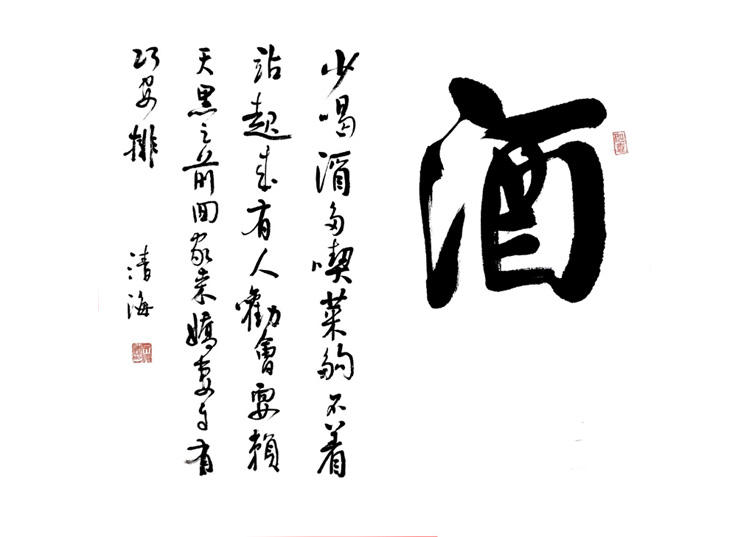 酒
少喝酒多喫菜夠不着
站起來有人勸會耍賴
天黑之前回家來嬌妻自有
巧安排
清海